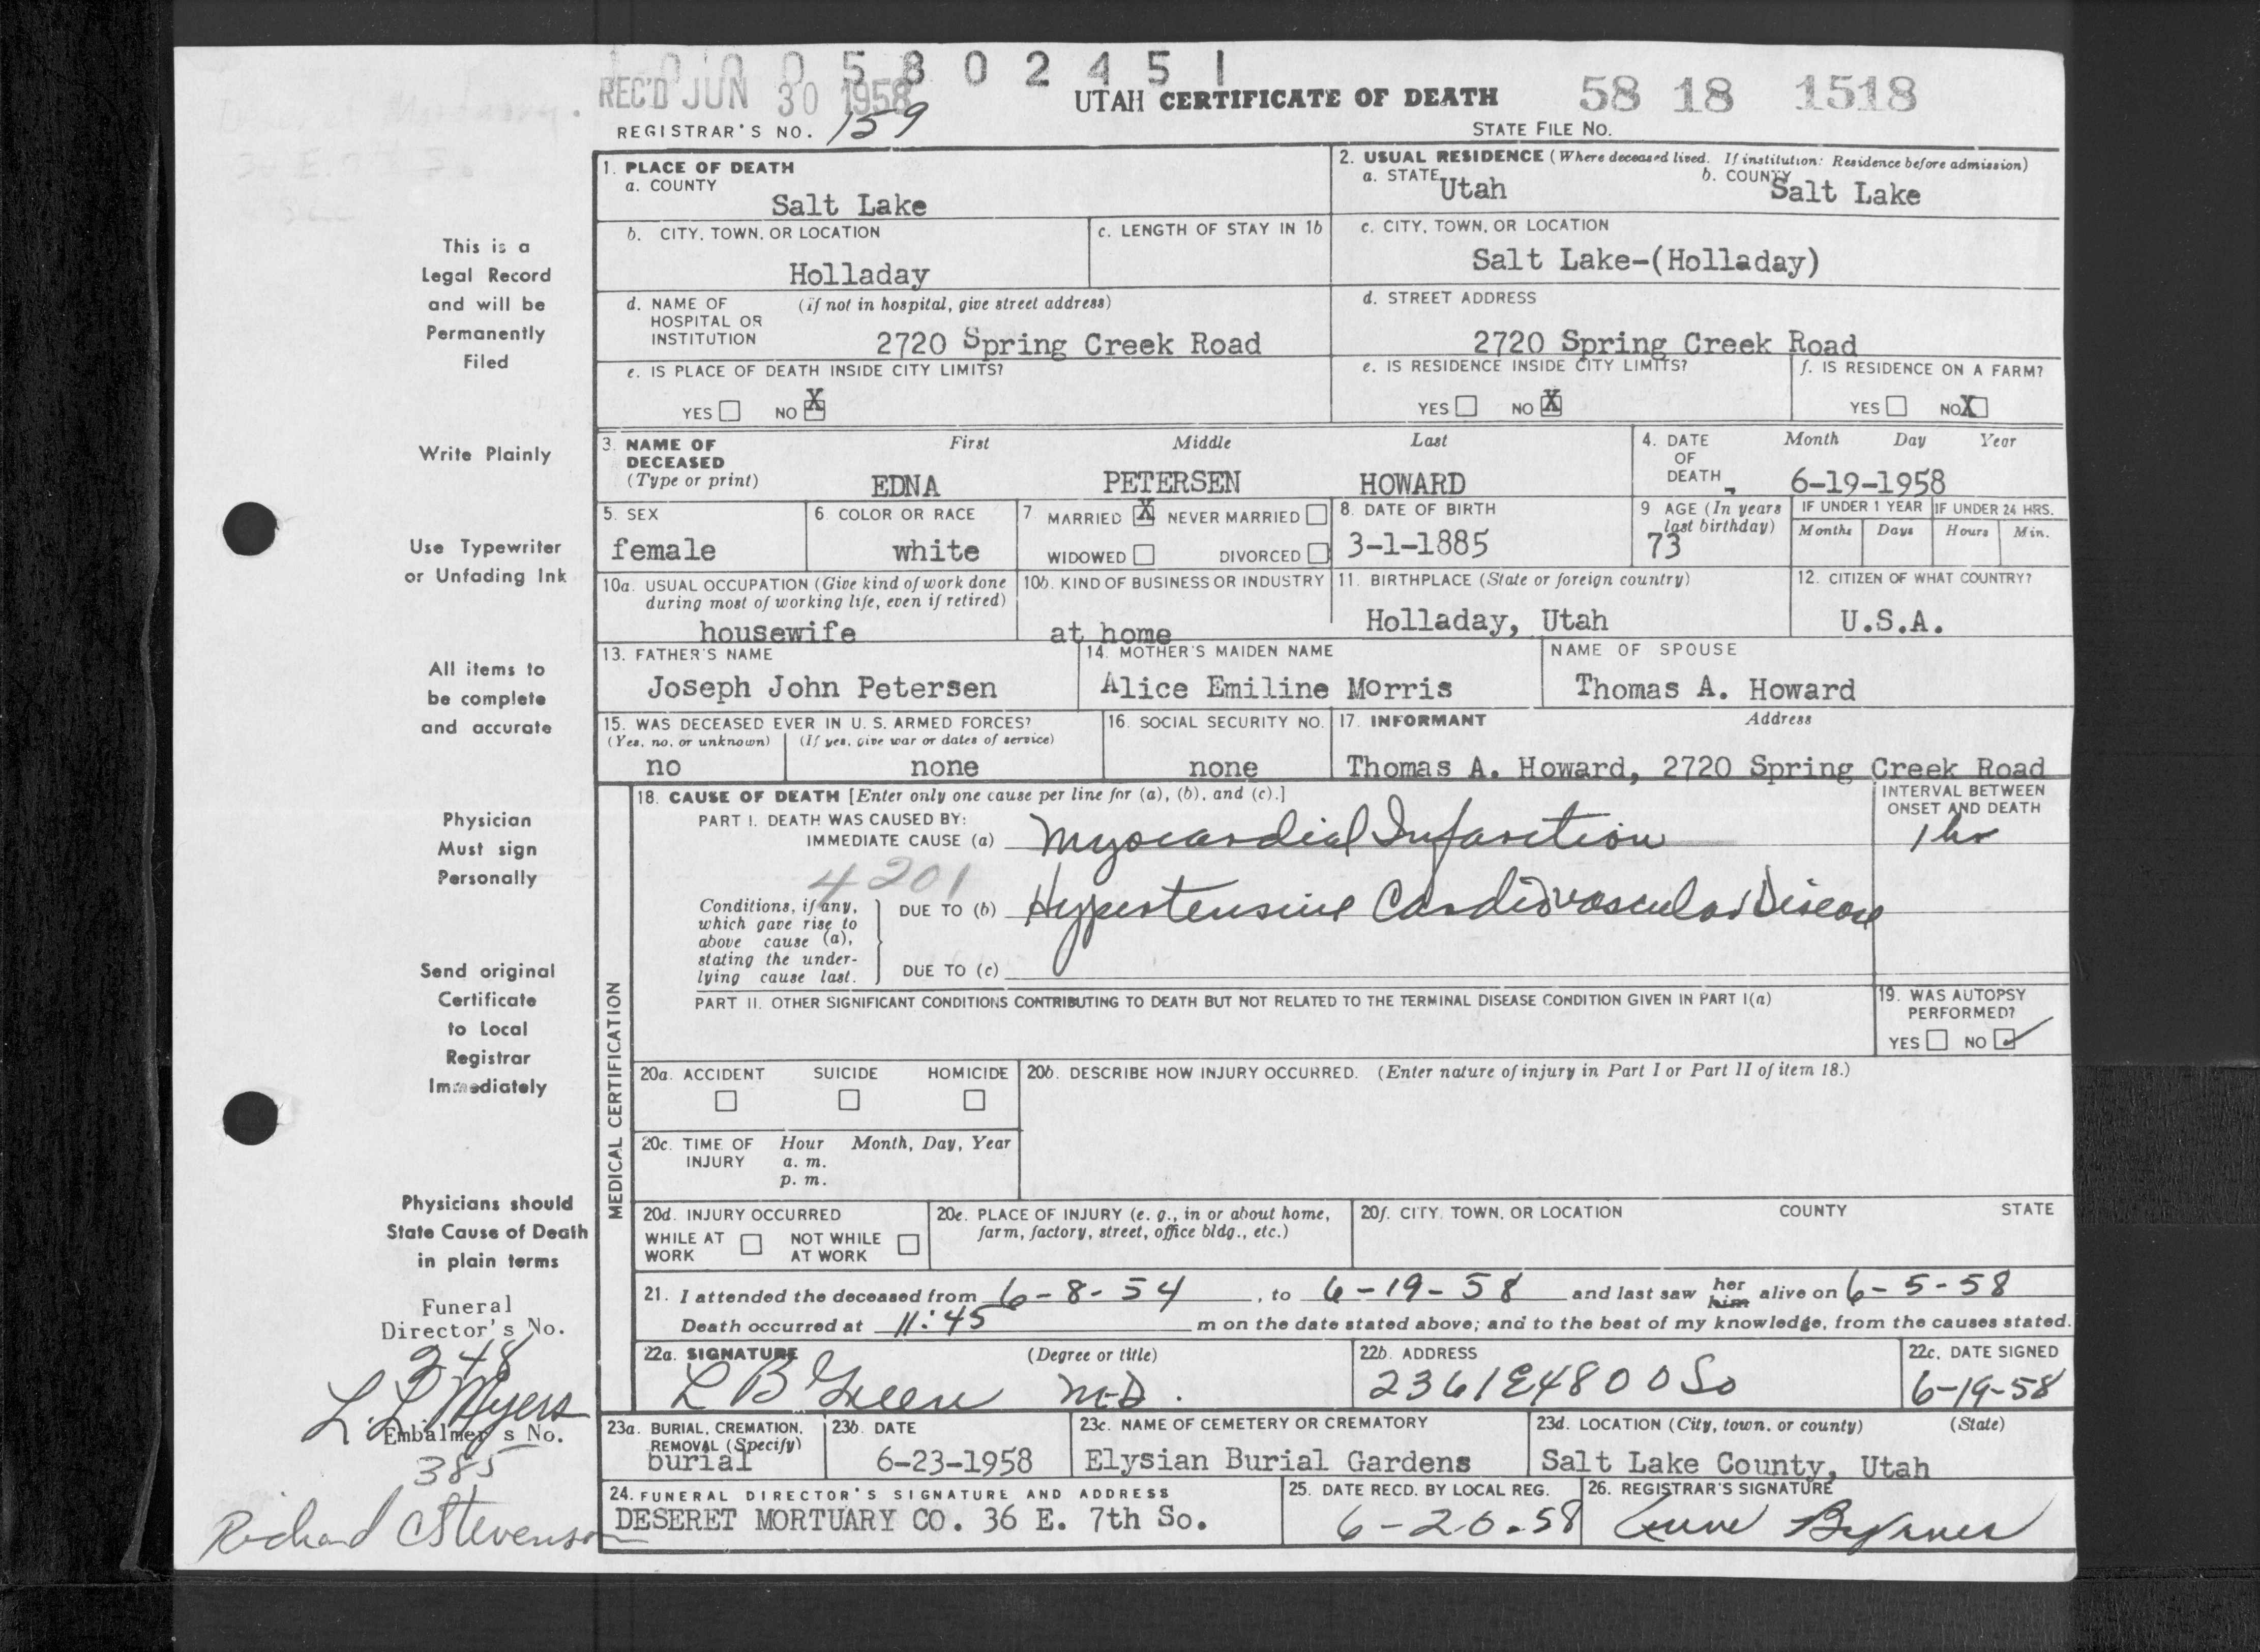 0 0 0 5 8 0 2 4 5 1
REC'D JUN 30 1958
UTAH CERTIFICATE OF DEATH
58 18 1518
REGISTRAR'S NO. 159
STATE FILE No.
1. PLACE OF DEATH
a. COUNTY
Salt Lake
2. USUAL RESIDENCE (Where deceased lived. If institution: Residence before admission)
a. STATE Utah
b. COUNTY Salt Lake
b. CITY, TOWN, OR LOCATION
Holladay
c. LENGTH OF STAY IN 1b
c. CITY, TOWN, OR LOCATION
Salt Lake-(Holladay)
d. NAME OF HOSPITAL OR INSTITUTION
(if not in hospital, give street address)
2720 Spring Creek Road
d. STREET ADDRESS
2720 Spring Creek Road
e. IS PLACE OF DEATH INSIDE CITY LIMITS?
YES NO X
e. IS RESIDENCE INSIDE CITY LIMITS?
YES NO X
f. IS RESIDENCE ON A FARM?
YES NO X
3. NAME OF DECEASED (Type or print)
First Middle Last
EDNA PETERSEN HOWARD
4. DATE OF DEATH
Month Day Year
6-19-1958
5. SEX
female
6. COLOR OR RACE
white
7 MARRIED X NEVER MARRIED
WIDOWED DIVORCED
8. DATE OF BIRTH
3-1-1885
9 AGE (In years last birthday)
73
IF UNDER 1 YEAR
Months Days
IF UNDER 24 HRS.
Hours Min.
10a. USUAL OCCUPATION (Give kind of work done during most of working life, even if retired)
housewife
10b. KIND OF BUSINESS OR INDUSTRY
at home
11. BIRTHPLACE (State or foreign country)
Holladay, Utah
12. CITIZEN OF WHAT COUNTRY?
U.S.A.
13. FATHER'S NAME
Joseph John Petersen
14. MOTHER'S MAIDEN NAME
Alice Emiline Morris
NAME OF SPOUSE
Thomas A. Howard
15. WAS DECEASED EVER IN U. S. ARMED FORCES?
(Yes, no, or unknown) (If yes, give war or dates of service)
no none
16. SOCIAL SECURITY NO.
none
17. INFORMANT Address
Thomas A. Howard, 2720 Spring Creek Road
MEDICAL CERTIFICATION
18. CAUSE OF DEATH [Enter only one cause per line for (a), (b), and (c).]
INTERVAL BETWEEN ONSET AND DEATH
PART I. DEATH WAS CAUSED BY:
IMMEDIATE CAUSE (a) Myocardial Infarction
1 hr
4201
Conditions, if any, which gave rise to above cause (a), stating the underlying cause last.
DUE TO (b) Hypertensive Cardiovascular Disease
DUE TO (c)
PART II. OTHER SIGNIFICANT CONDITIONS CONTRIBUTING TO DEATH BUT NOT RELATED TO THE TERMINAL DISEASE CONDITION GIVEN IN PART I(a)
19. WAS AUTOPSY PERFORMED?
YES NO ✓
20a. ACCIDENT SUICIDE HOMICIDE
20b. DESCRIBE HOW INJURY OCCURRED. (Enter nature of injury in Part I or Part II of item 18.)
20c. TIME OF INJURY
Hour Month, Day, Year
a. m.
p. m.
20d. INJURY OCCURRED
WHILE AT WORK NOT WHILE AT WORK
20e. PLACE OF INJURY (e. g., in or about home, farm, factory, street, office bldg., etc.)
20f. CITY, TOWN, OR LOCATION COUNTY STATE
21. I attended the deceased from 6-8-54, to 6-19-58 and last saw her him alive on 6-5-58
Death occurred at 11:45 m on the date stated above; and to the best of my knowledge, from the causes stated.
22a. SIGNATURE (Degree or title)
L B Green M.D.
22b. ADDRESS
2361 E 4800 So
22c. DATE SIGNED
6-19-58
23a. BURIAL, CREMATION, REMOVAL (Specify)
burial
23b. DATE
6-23-1958
23c. NAME OF CEMETERY OR CREMATORY
Elysian Burial Gardens
23d. LOCATION (City, town, or county) (State)
Salt Lake County, Utah
24. FUNERAL DIRECTOR'S SIGNATURE AND ADDRESS
DESERET MORTUARY CO. 36 E. 7th So.
25. DATE RECD. BY LOCAL REG.
6-20-58
26. REGISTRAR'S SIGNATURE
This is a
Legal Record
and will be
Permanently
Filed
Write Plainly
Use Typewriter
or Unfading Ink
All items to
be complete
and accurate
Physician
Must sign
Personally
Send original
Certificate
to Local
Registrar
Immediately
Physicians should
State Cause of Death
in plain terms
Funeral
Director's No.
248
L. L. Myers
Embalmer's No.
385
Richard C Stevenson